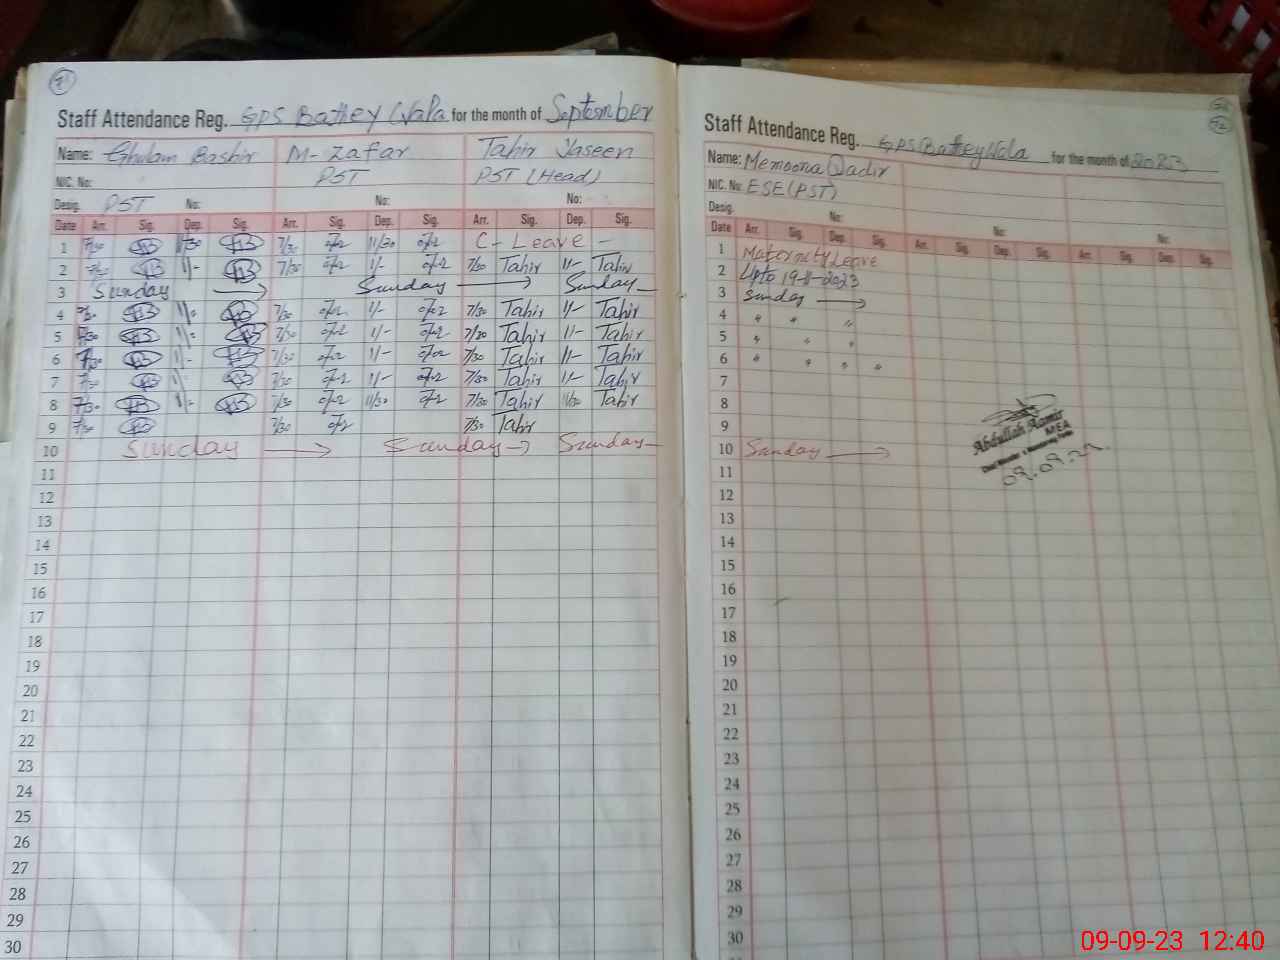 71
Staff Attendance Reg. GPS Bathey Wala for the month of September
Name: Ghulam Bashir M- Zafar Tahir Yaseen
PST PST (Head)
NIC. No:
Desig. PST No: No: No:
Date Arr. Sig. Dep. Sig. Arr. Sig. Dep. Sig. Arr. Sig. Dep. Sig.
1 7/30 11/30 7/30 11/30 C- Leave -
2 7/30 11/- 7/30 11/- 7/30 Tahir 11/- Tahir
3 Sunday Sunday Sunday
4 7/30 11/- 7/30 11/- 7/30 Tahir 11/- Tahir
5 7/30 11/- 7/30 11/- 7/30 Tahir 11/- Tahir
6 7/30 11/- 7/30 11/- 7/30 Tahir 11/- Tahir
7 7/30 11/- 7/30 11/- 7/30 Tahir 11/- Tahir
8 7/30 11/- 7/30 11/30 7/30 Tahir 11/30 Tahir
9 7/30 7/30 7/30 Tahir
10 Sunday → Sunday → Sunday
11
12
13
14
15
16
17
18
19
20
21
22
23
24
25
26
27
28
29
30
72
Staff Attendance Reg. GPS Bathey Wala for the month of 2023
Name: Memoona Qadir
NIC. No: ESE (PST)
Desig. No: No: No:
Date Arr. Sig. Dep. Sig. Arr. Sig. Dep. Sig. Arr. Sig. Dep. Sig.
1 Maternity Leave
2 Upto 19-11-2023
3 Sunday →
4 " " "
5 " " "
6 " " " "
7
8
9
10 Sunday →
Abdullah Aamir
MEA
09.09.23
11
12
13
14
15
16
17
18
19
20
21
22
23
24
25
26
27
28
29
30
09-09-23 12:40